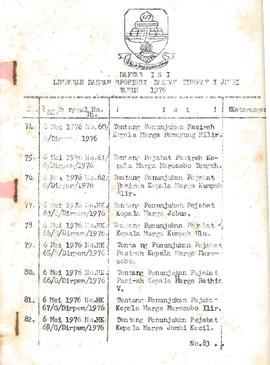 DAFTAR ISI
LEMBARAN DAERAH PROPINSI DAERAH TINGKAT I JAMBI
TAHUN 1976
I s i
Keterangan
74. 6 Mei 1976 No.60/ Tentang Penunjukan Pasirah
/Dirpem/1976 Kepala Marga Pemayung Hilir.
75. 6 Mei 1976 No.61/ Tentang Pejabat Pasirah Ke-
G/Dirpem/1976 pala Marga Marosebo Tengah.
76. 6 Mei 1976 No.62/ Tentang Penunjukan Pejabat
G/Dirpem/1976 Pasirah Kepala Marga Kumpeh
Ilir.
77. 6 Mei 1976 No.HK Tentang Penunjukan Pejabat
63/G/Dirpem/1976 Kepala Marga Jebus.
78. 6 Mei 1976 No.HK Tentang Penunjukan Pejabat
/G/Dirpem/1976 Kepala Marga Kumpeh Ulu.
79. 6 Mei 1976 No.HK Tentang Penunjukan Pejabat
65/G/Dirpem/1976 Pasirah Kepala Marga Maro-
sebo.
80. 6 Mei 1976 No.HK Tentang Penunjukan Pejabat
66/G/Dirpem/1976 Pasirah Kepala Marga Bathin
V.
81. 6 Mei 1976 No.HK Tentang Penunjukan Pejabat
67/G/Dirpem/1976 Kepala Marga Marosebo Ilir.
82. 6 Mei 1976 No.HK Tentang Penunjukan Pejabat
68/G/Dirpem/1976 Kepala Marga Jambi Kecil.
No.83 ..